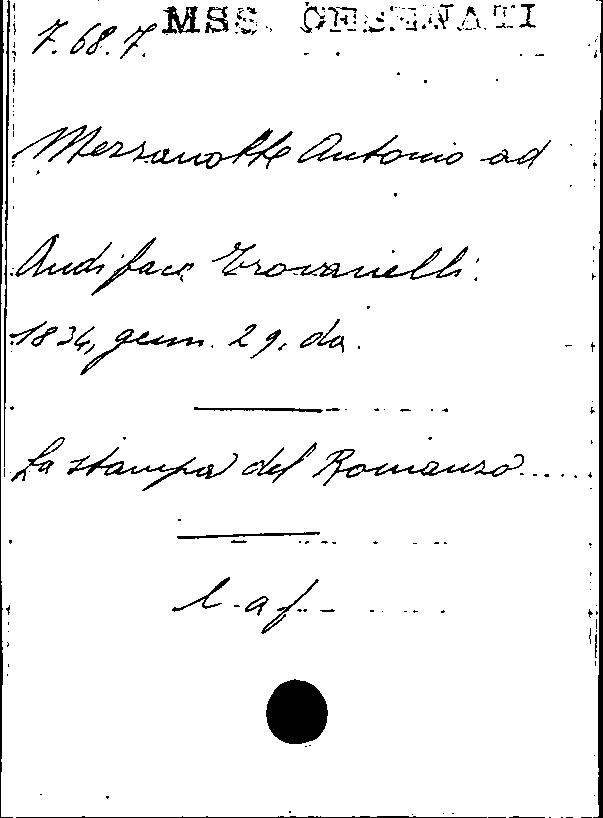 MSS. CESENATI
7.68.7.
Mezzanotte Antonio ad
Audiface Trovanelli.
1834, genn. 29, da.
La stampa del Romanzo.....
l. a f.